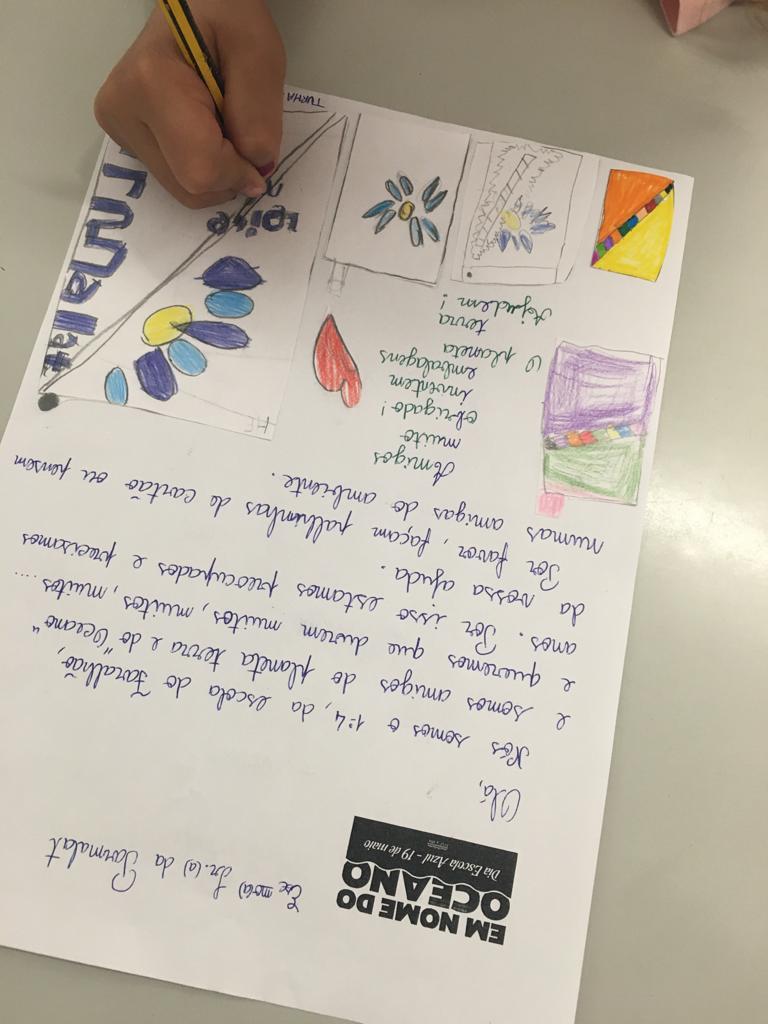 EM NOME DO
OCEANO
Dia Escola Azul - 19 de maio
Exc mo(a) Sr.(a) da Parmalat
Olá,
Nós somos o 1º4, da escola do Faralhão,
e somos amigos do planeta terra e do "Oceano"
e queremos que durem muitos, muitos, muitos....
anos. Por isso estamos preocupados e precisamos
da vossa ajuda.
Por favor, façam palhinhas de cartão ou pensem
numas amigas do ambiente.
Amigos
muito
obrigado!
inventem
embalagens
O planeta
terra
Ajudem!
TURMA